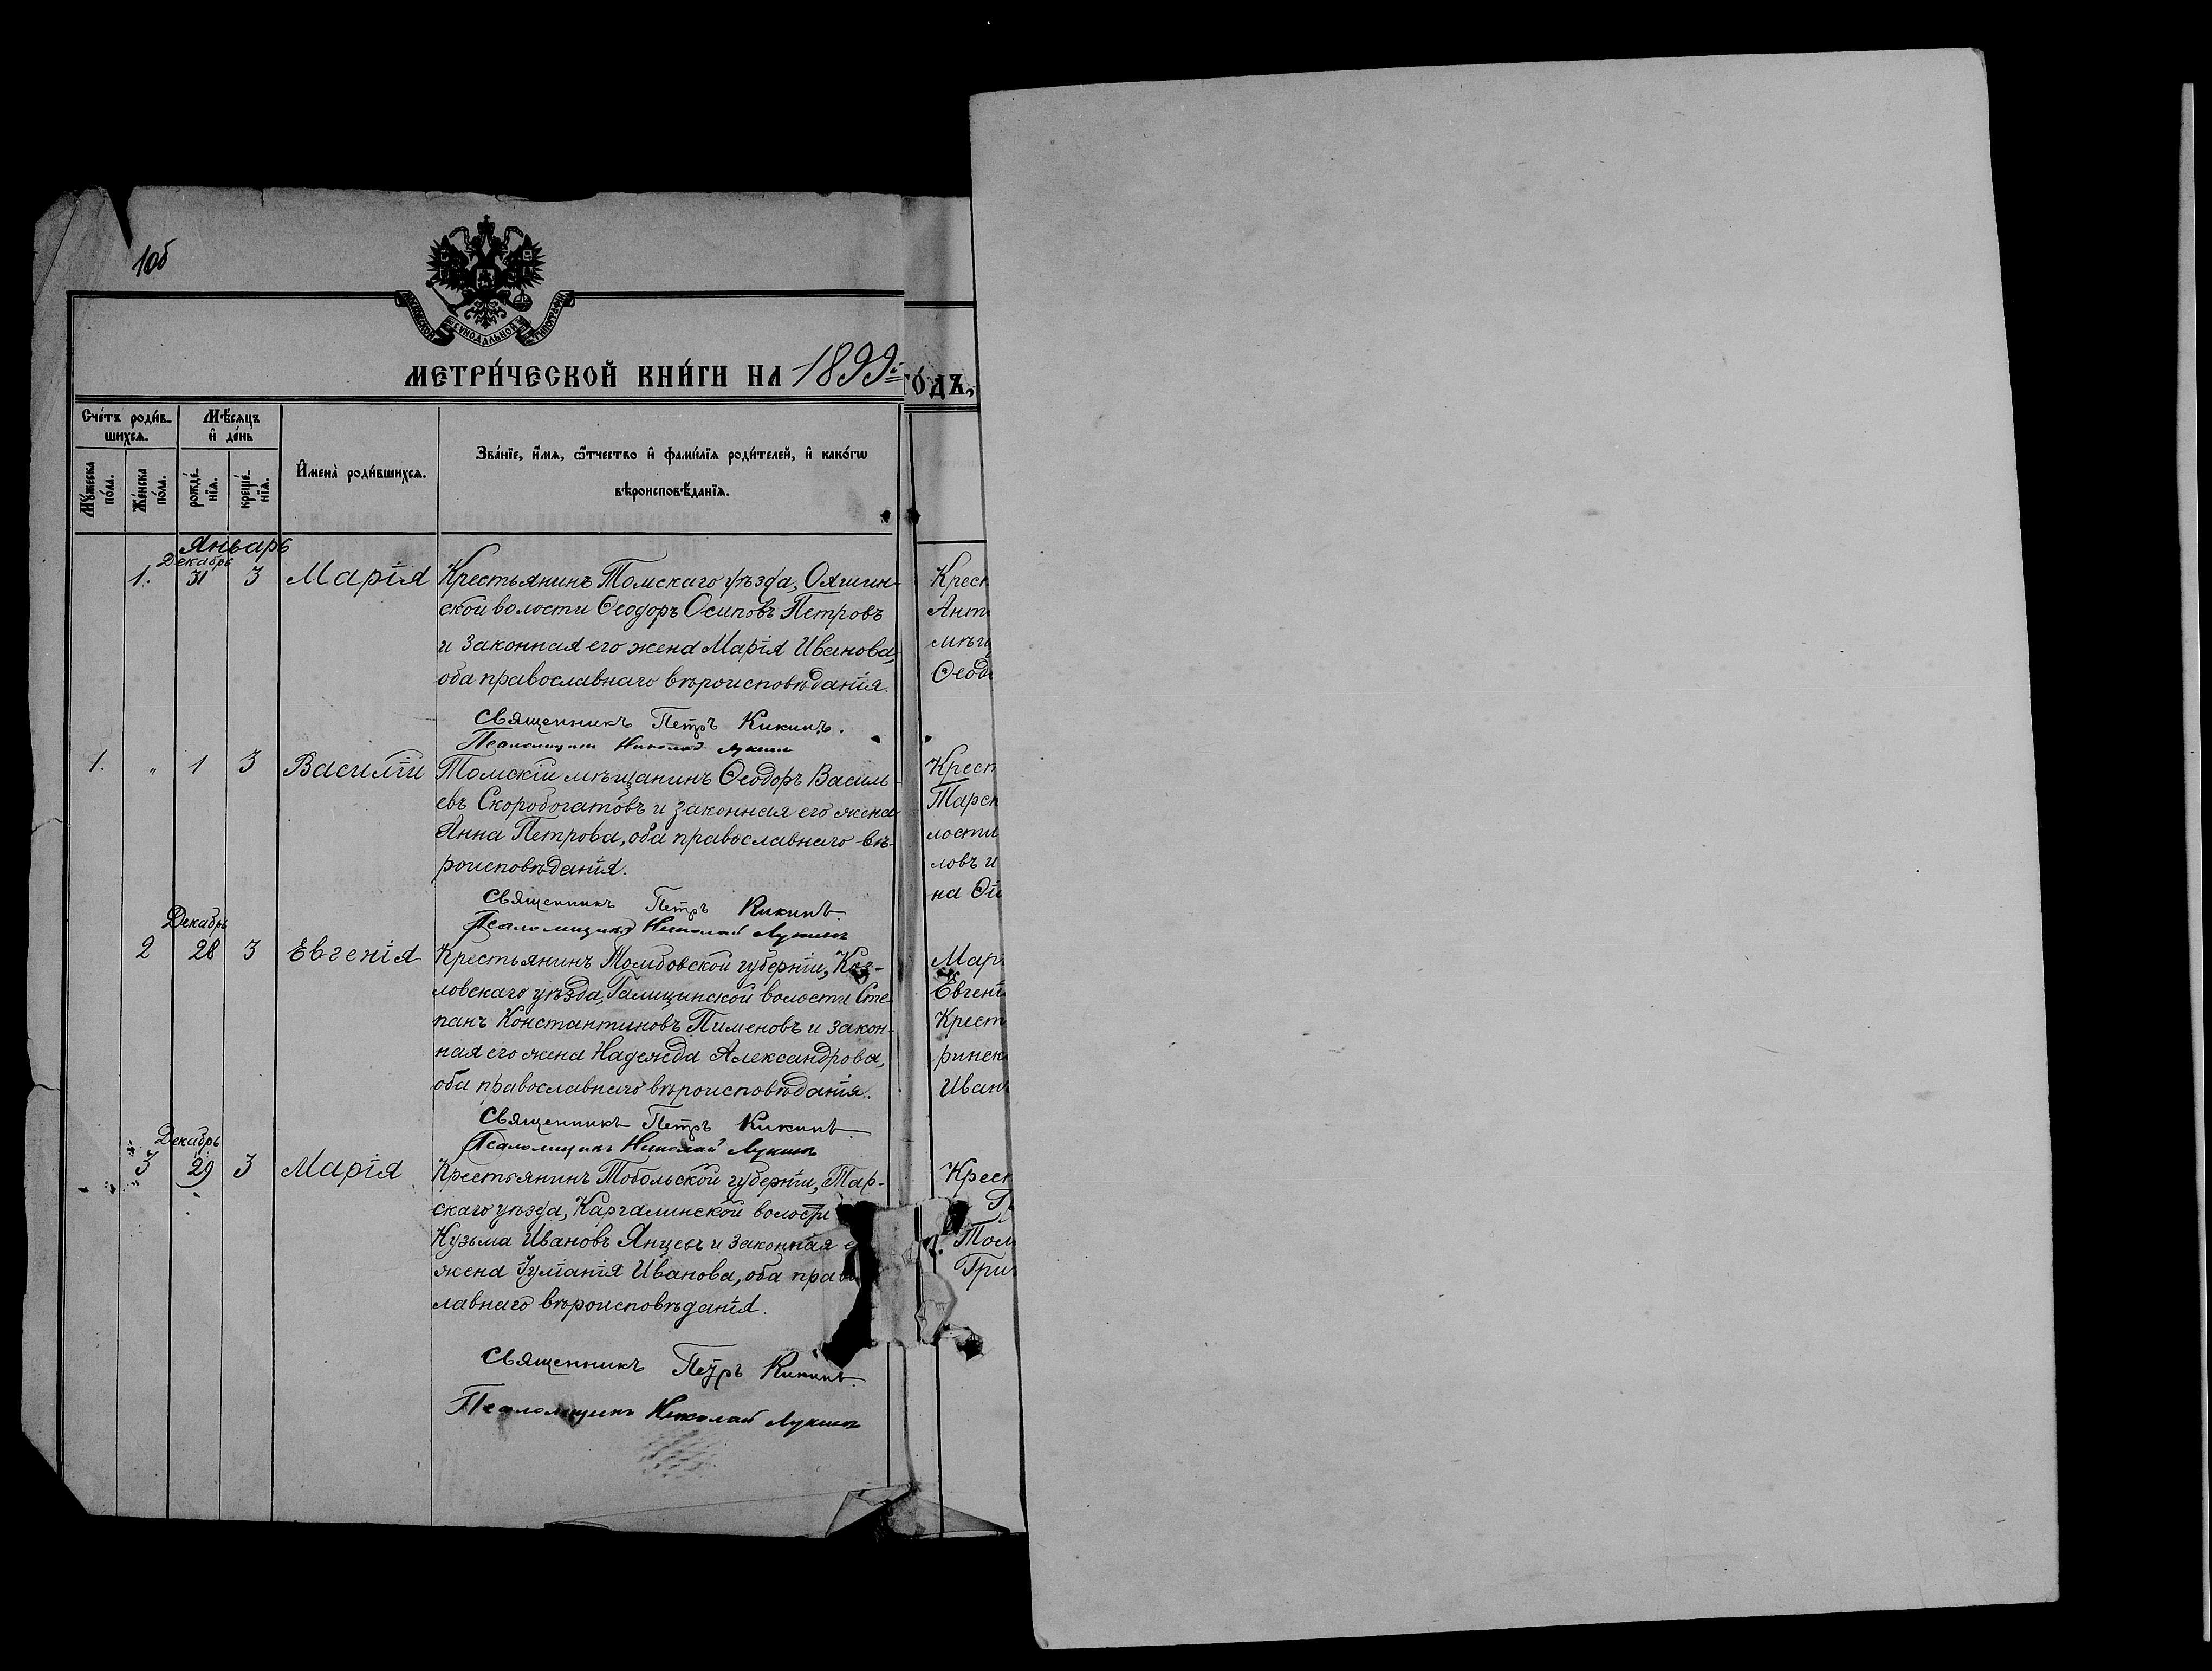 106
МОСКОВСКОЙ СѴНОДАЛЬНОЙ ТИПОГРАФІИ
МЕТРИ́ЧЕСКОЙ КНИ́ГИ НА 1899й ГО́ДЪ,
Сче́тъ роди́в-
шихсѧ.
Мѣ́сяцъ
и҆ де́нь
Мꙋ́жеска
по́ла.
Же́нска
по́ла.
рожде́-
нїѧ.
креще́-
нїѧ.
И҆мена̀ роди́вшихсѧ.
Зва́нїе, и҆́мѧ, ѻ҆́тчество и҆ фами́лїѧ роди́телей, и҆ како́гѡ
вѣроисповѣ́данїѧ.
Январь
Декабрь
1. 31 3 Марія Крестьянинъ Томскаго уѣзда, Ояшин-
ской волости Ѳеодоръ Осиповъ Петровъ
и законная его жена Марія Иванова,
оба православнаго вѣроисповѣданія.
Священникъ Петръ Кикинъ.
Псаломщикъ Николай Лукинъ
1. „ 1 3 Василій Томскій мѣщанинъ Ѳеодоръ Василь-
евъ Скоробогатовъ и законная его жена
Анна Петрова, оба православнаго вѣ-
роисповѣданія.
Священникъ Петръ Кикинъ.
Псаломщикъ Николай Лукинъ
Декабрь
2 28 3 Евгенія Крестьянинъ Томбовской губерніи, Коз-
ловскаго уѣзда, Галицынской волости Сте-
панъ Константиновъ Пименовъ и закон-
ная его жена Надежда Александрова,
оба православнаго вѣроисповѣданія.
Священникъ Петръ Кикинъ.
Псаломщикъ Николай Лукинъ
Декабрь
3 29 3 Марія Крестьянинъ Тобольской губерніи, Тар-
скаго уѣзда, Каргалинской волости
Кузьма Ивановъ Янцевъ и законная е
жена Іуліанія Иванова, оба право
лавнаго вѣроисповѣданія.
Священникъ Петръ Кикинъ.
Псаломщикъ Николай Лукинъ
Крест
Анто
мѣщ
Ѳеодо
Крест
Тарск
лости
ловъ и
на Ѳи
Мар
Евгені
Крест
ринск
Иван
Крест
Том
Григ